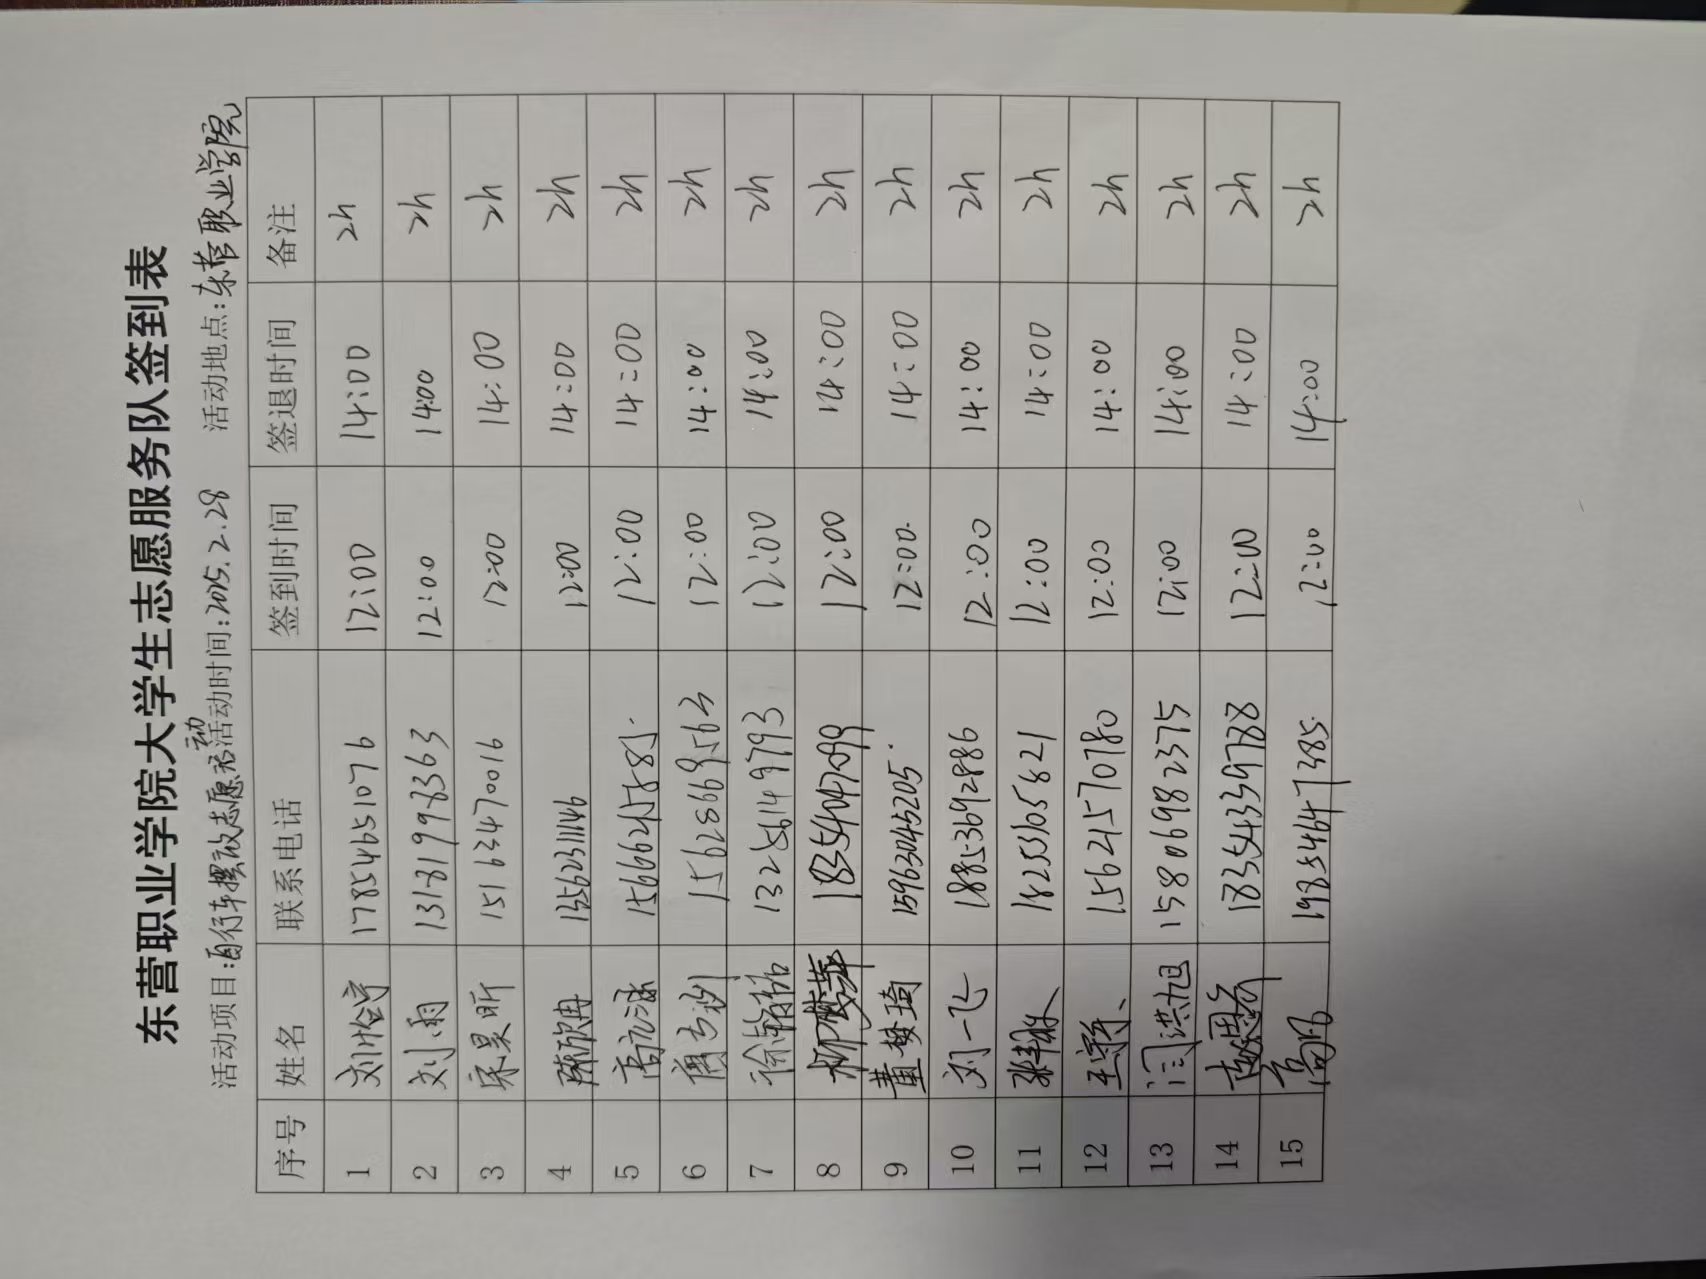 东营职业学院大学生志愿服务队签到表
活动项目:自行车摆放志愿活动 活动时间:2025.2.28 活动地点:东营职业学院
序号 姓名 联系电话 签到时间 签退时间 备注
1 刘怡宁 17854651076 12:00 14:00 2h
2 刘雨 13181998363 12:00 14:00 2h
3 宋昊昕 15163470016 12:00 14:00 2h
4 陈欣冉 12:00 14:00 2h
5 高 12:00 14:00 2h
6 15628669563 12:00 14:00 2h
7 徐 13285149793 12:00 14:00 2h
8 柳梦萍 18354047099 12:00 14:00 2h
9 董梦琦 15963045205 12:00 14:00 2h
10 刘一飞 18853692886 12:00 14:00 2h
11 张 18253365821 12:00 14:00 2h
12 15621570780 12:00 14:00 2h
13 闫洪旭 15806982375 12:00 14:00 2h
14 18354339788 12:00 14:00 2h
15 高帆 19854647385 12:00 14:00 2h